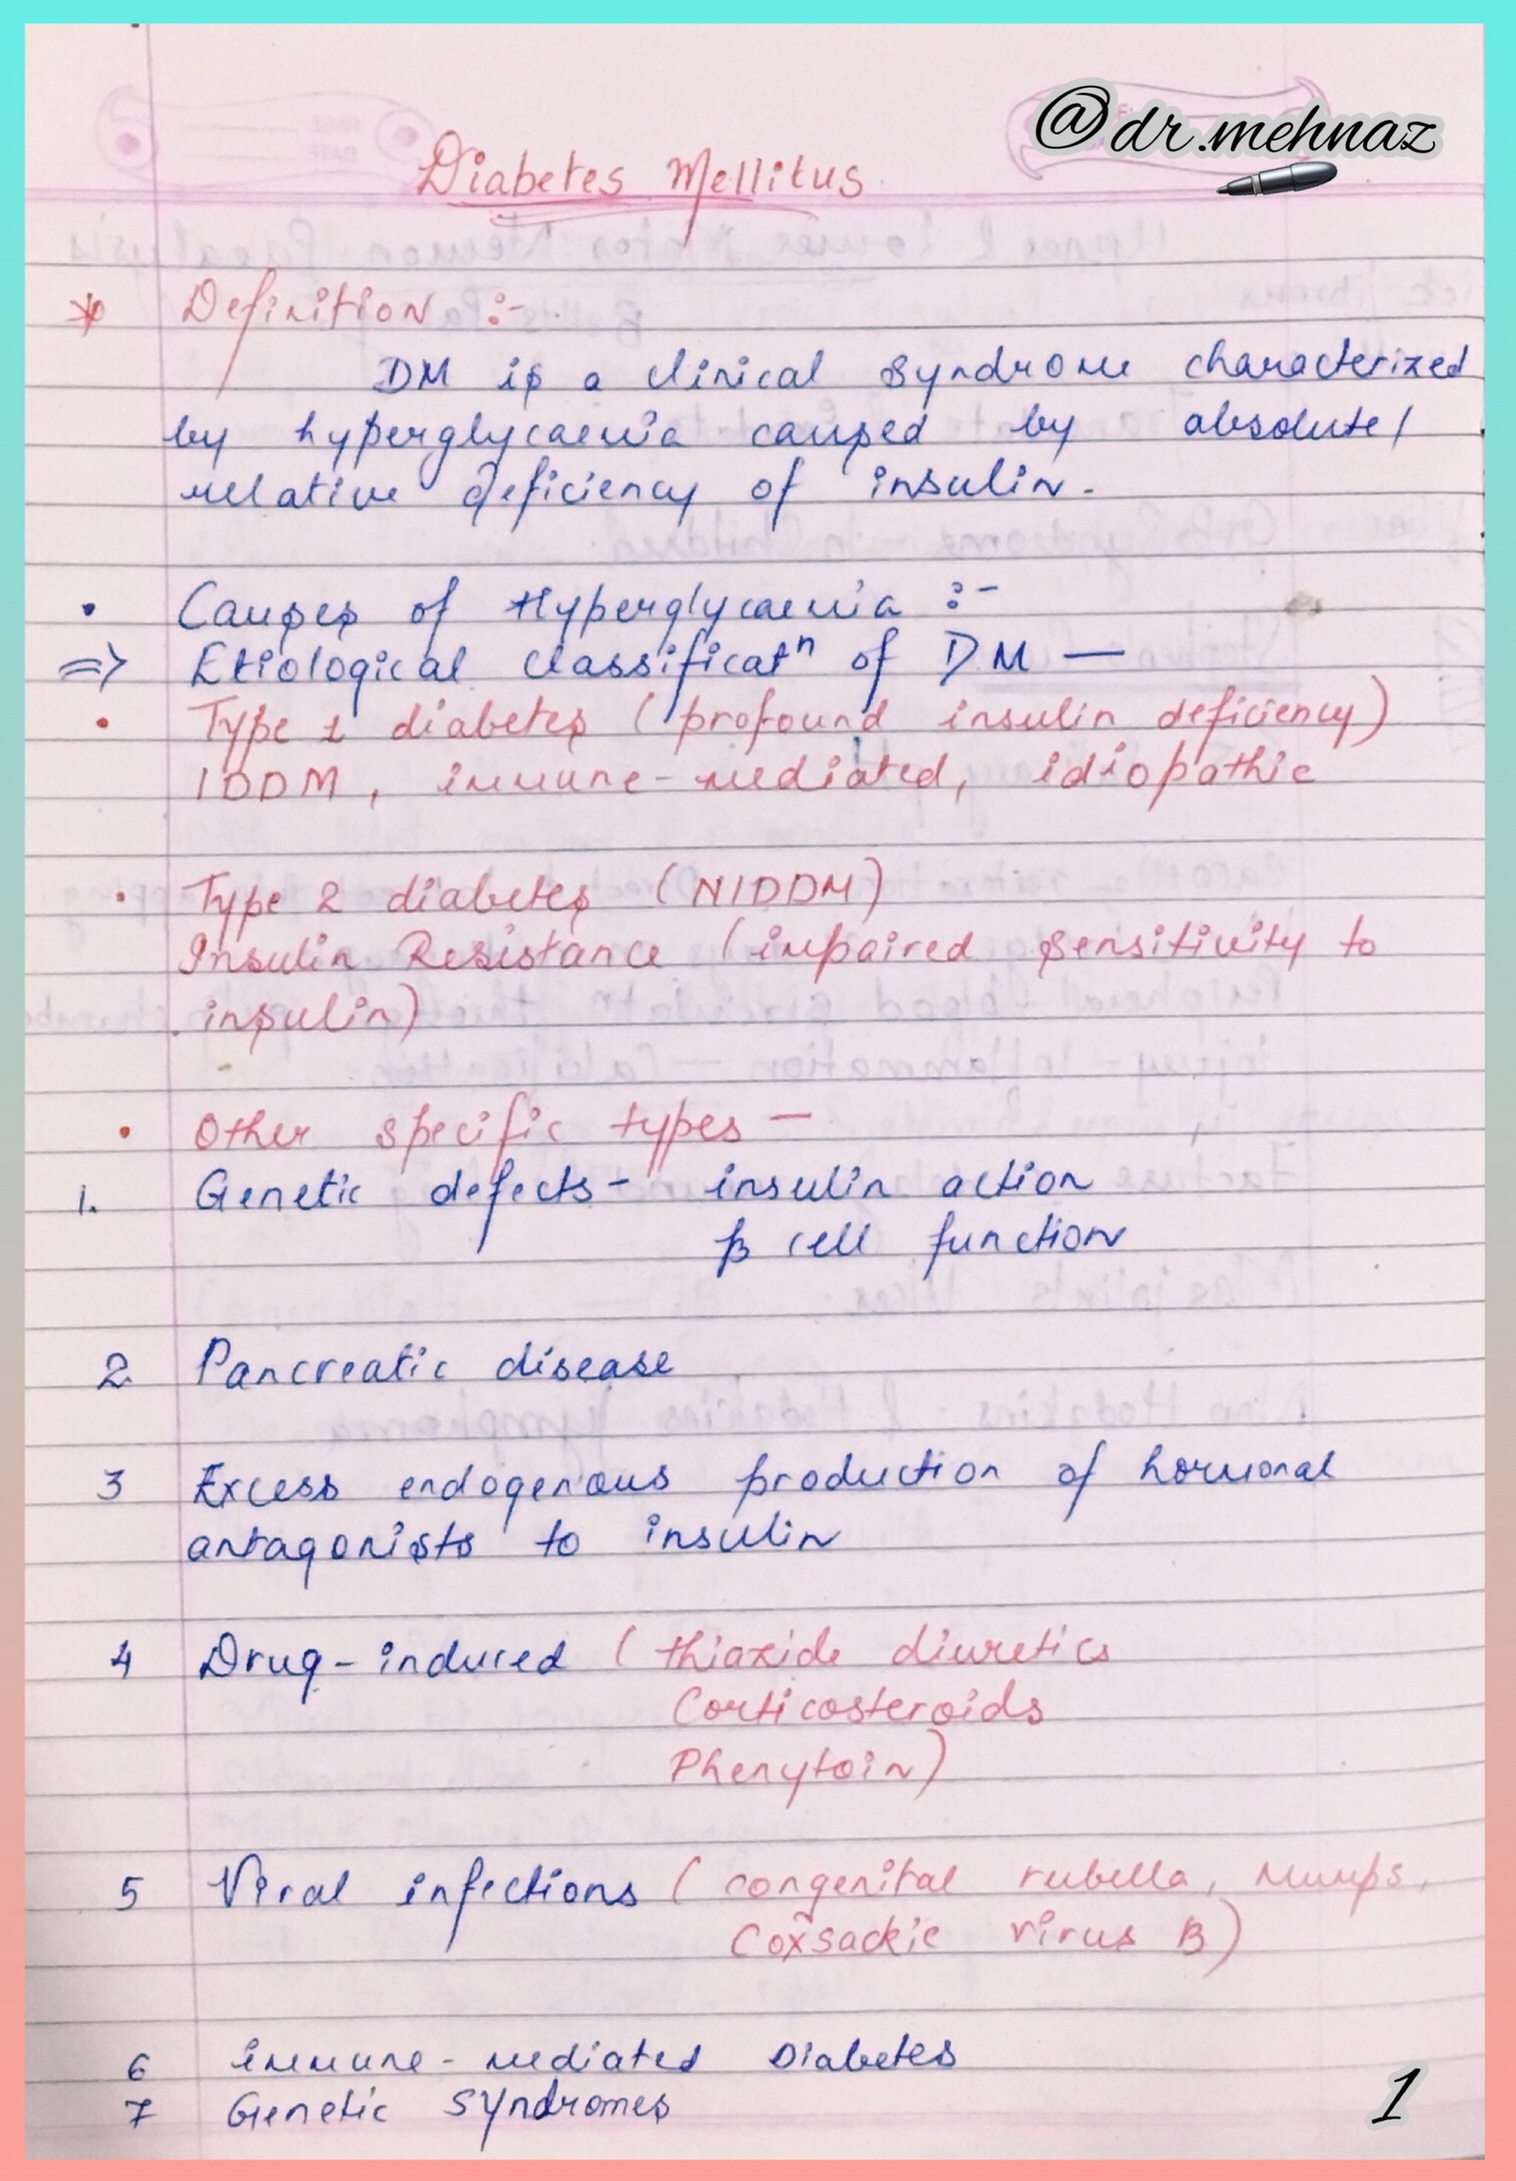 @dr.mehnaz
Diabetes Mellitus
* Definition :-
DM is a clinical syndrome characterized
by hyperglycaemia caused by absolute/
relative deficiency of insulin.
• Causes of Hyperglycaemia :-
⇒ Etiological classificatⁿ of D.M —
• Type 1 diabetes (profound insulin deficiency)
IDDM, immune-mediated, idiopathic
• Type 2 diabetes (NIDDM)
Insulin Resistance (impaired sensitivity to
insulin)
• Other specific types —
1. Genetic defects - insulin action
β cell function
2 Pancreatic disease
3 Excess endogenous production of hormonal
antagonists to insulin
4 Drug-induced (thiazide diuretics
Corticosteroids
Phenytoin)
5 Viral infections (congenital rubella, Mumps,
Coxsackie virus B)
6 immune-mediated Diabetes
7 Genetic syndromes
1